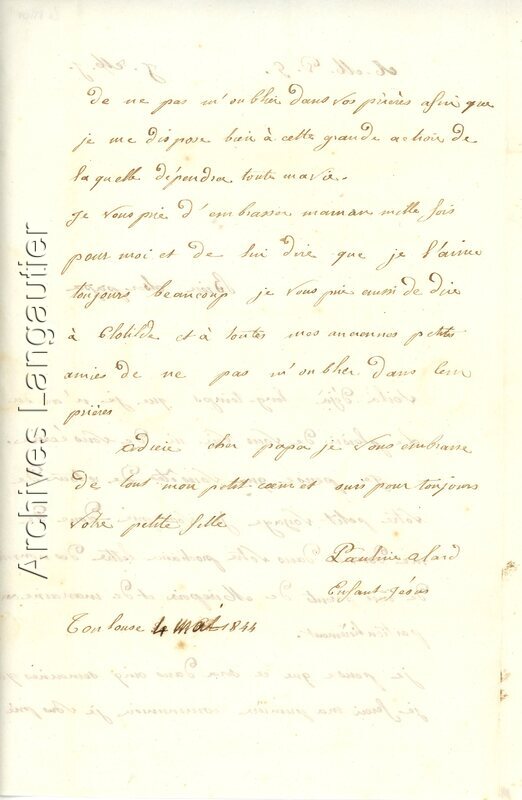 de ne pas m'oublier dans vos prières afin que
je me dispose bien à cette grande action de
la quelle dépendra toute ma vie.
je vous prie d'embrasser maman mille fois
pour moi et de lui dire que je l'aime
toujours beaucoup je vous prie aussi de dire
à Clotilde et à toutes mes anciennes petites
amies de ne pas m'oublier dans leur
prières
adieu cher papa je vous embrasse
de tout mon petit cœur et suis pour toujours
votre petite fille
Pauline alard
Enfant Jésus
Toulouse 4 mai 1844
Archives Langautier